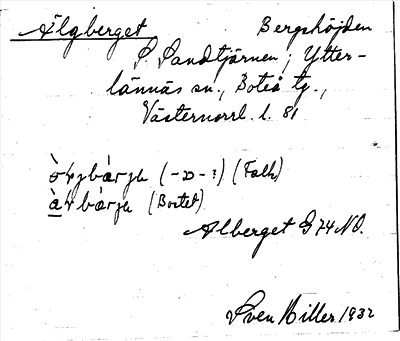 Älgberget Bergshöjden
S. Sandtjärnen, Ytter-
lännäs sn., Boteå tg.,
Västernorrl. l. 81
(Falh)
(Bortet)
Alberget G 74 NO.
Sven Hiller 1932